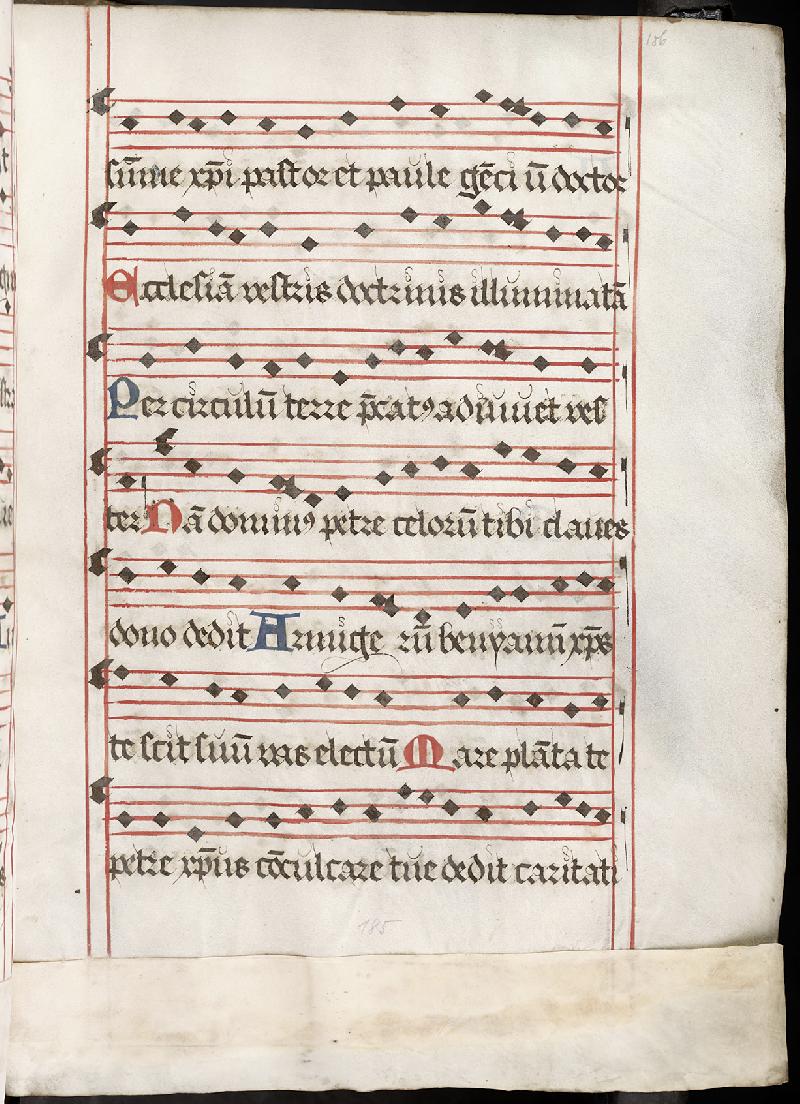 186
sūme xp̄i pastor et paule gēciū doctor
Ecclesiā vestris doctrinis illuminatā
Per circulū terre p̄catꝰ adiuuet ves
ter Nā dominꝰ petre celorū tibi claues
dono dedit Armige rū beniamin xp̄s
te scit suū vas electū Mare plāta te
petre xp̄us cōculcare tue dedit caritati
185